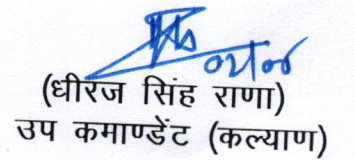 (धीरज सिंह राणा)
उप कमाण्डेंट (कल्याण)